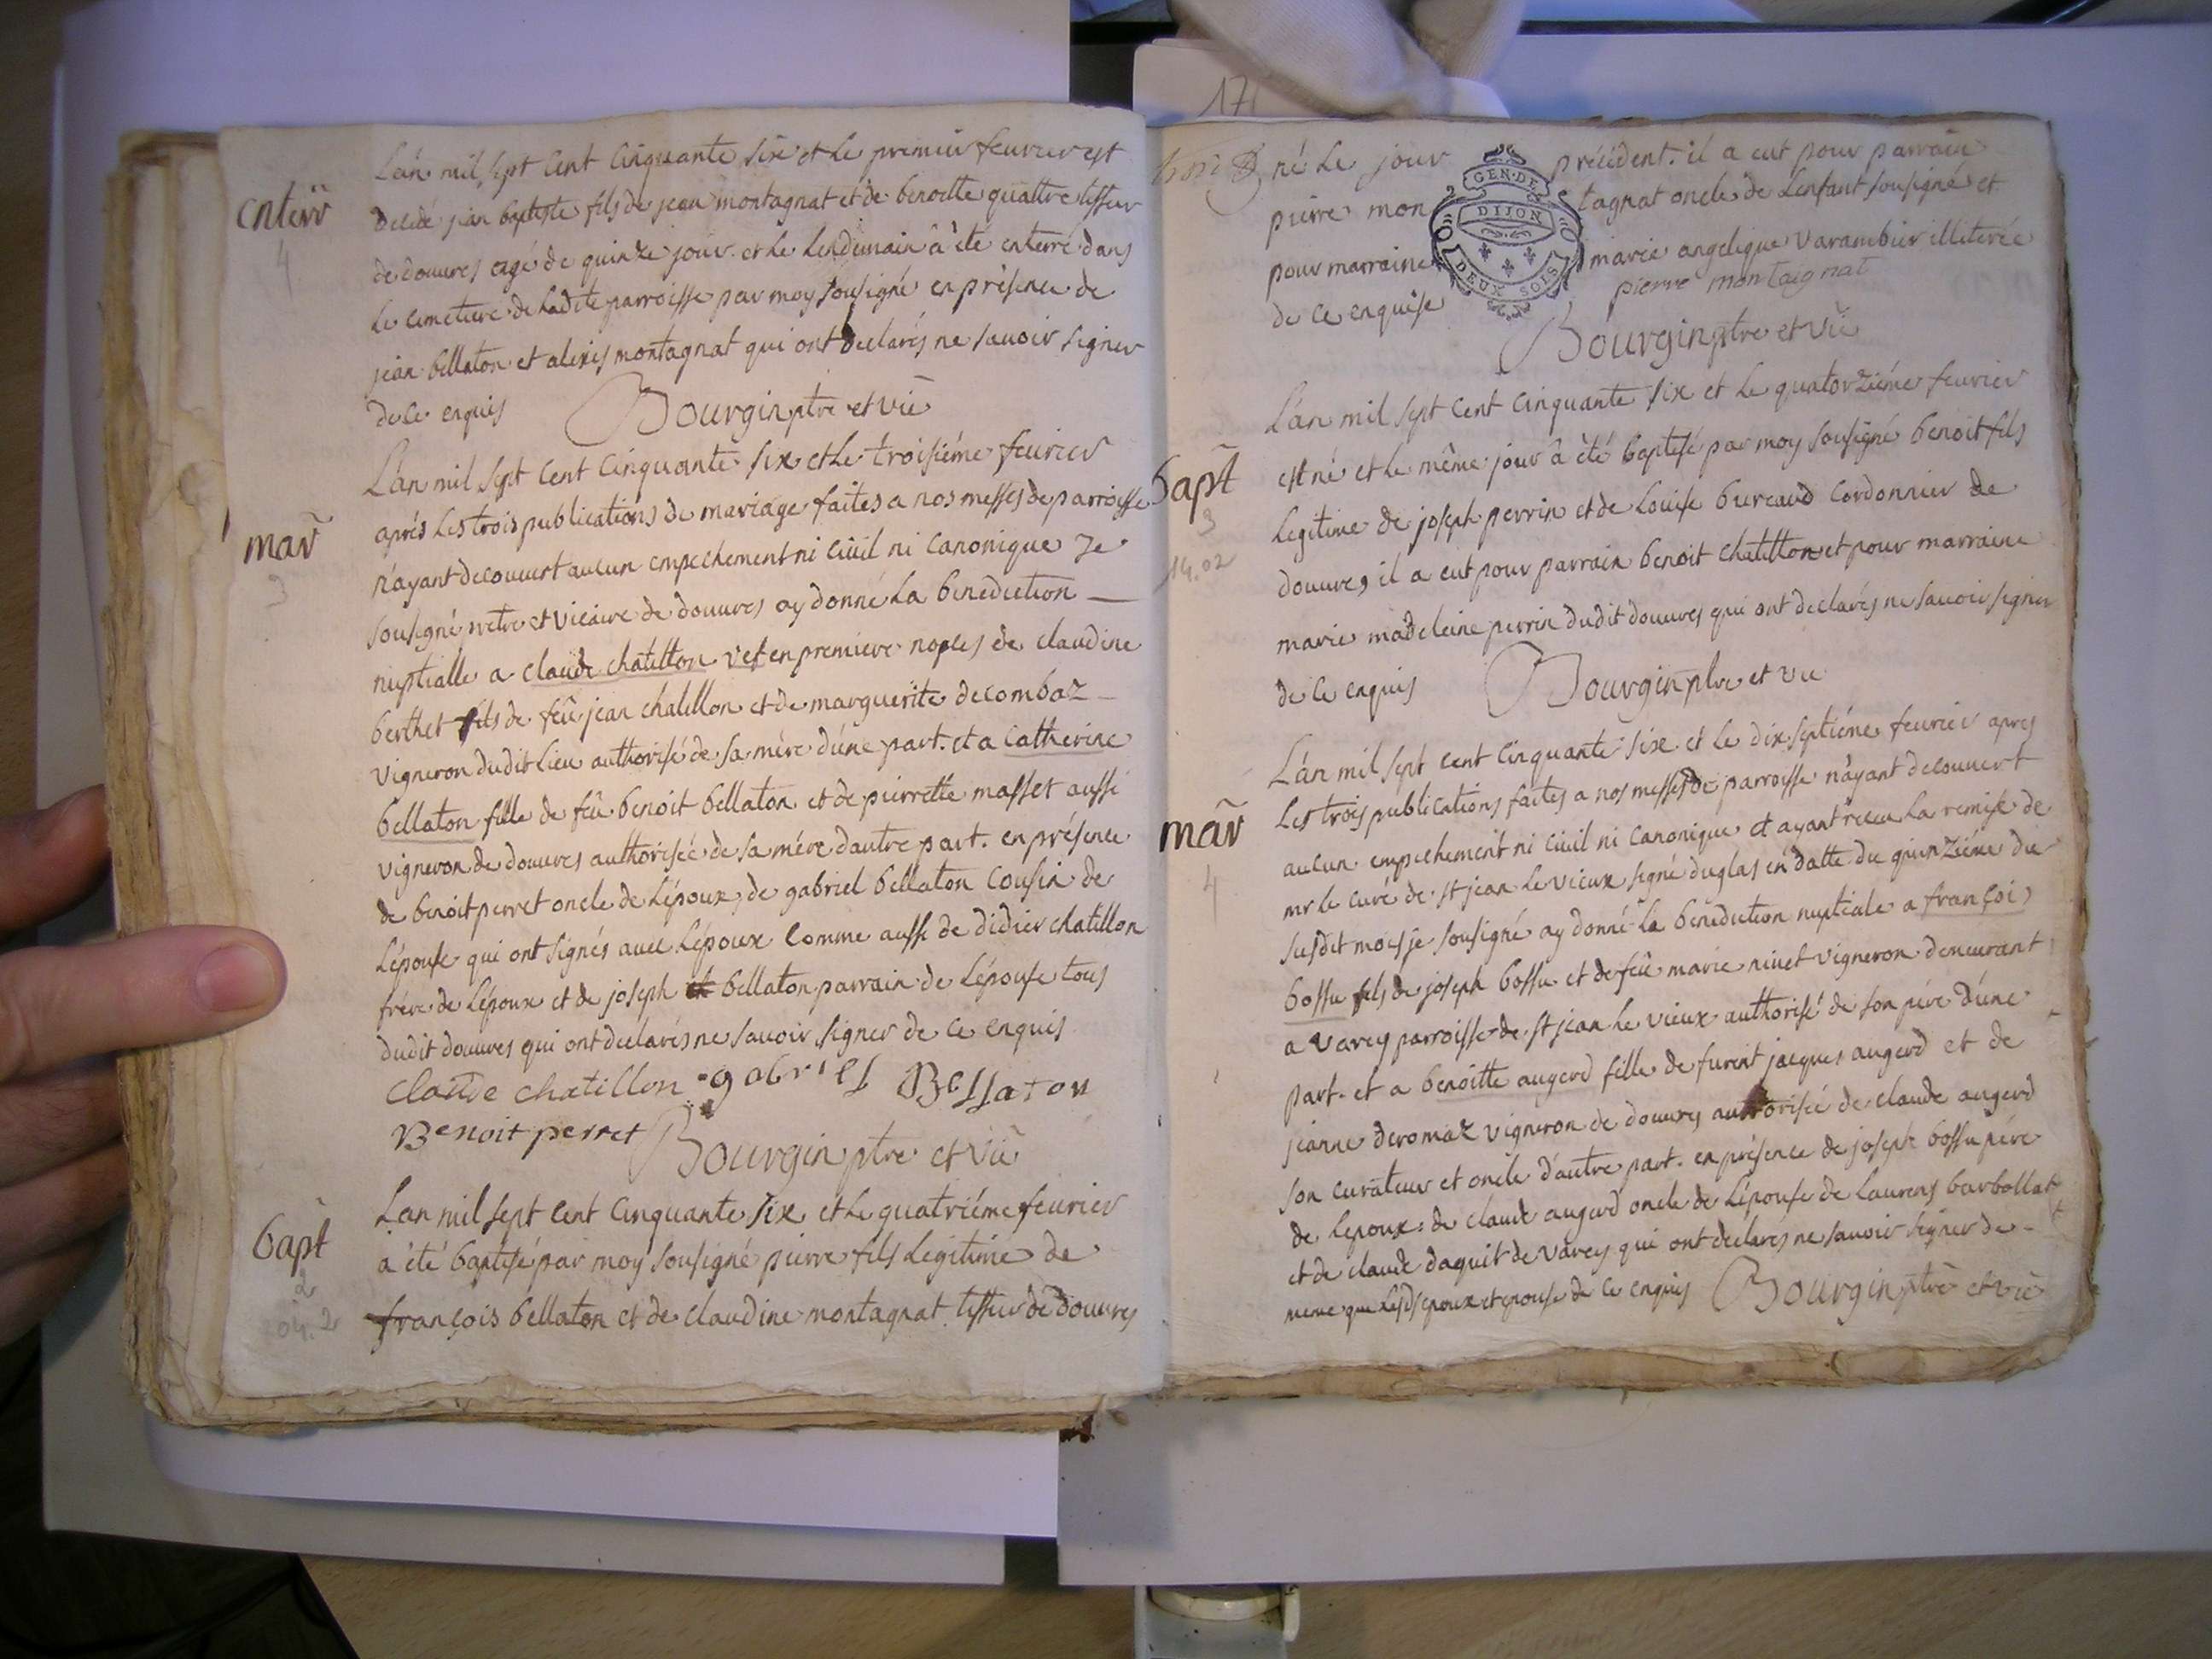 L'an mil sept cent cinquante six et le premier feurier est
enterr
4
decedé jean baptiste fils de jean montagnat et de benoitte quattre tisseur
de douures agé de quinze jour. et le lendemain à été enterré dans
le cimetiere de ladite parroisse par moy sousigné en présence de
jean bellaton et alexis montagnat qui ont declarés ne sauoir signer
de ce enquis Bourgin ptre et vic
L'an mil sept cent cinquante six et le troisiéme feurier
mar
3
aprés les trois publications de mariage faites a nos messes de parroisse
n'ayant decouuert aucun empechement ni ciuil ni canonique je
sousigné pretre et vicaire de douures ay donné la benediction
nuptialle a claude châtillon vef en premiere nopces de claudine
berthet fils de feû jean chatillon et de marguerite decombaz
vigneron dudit lieu authorisé de sa mére d'une part. et a catherine
bellaton fille de feû benoit bellaton et de pierrette masset aussi
vigneron de douures authorisée de sa mére dautre part. en présence
de benoit perret oncle de l'époux, de gabriel bellaton cousin de
l'épouse qui ont signés auec l'époux comme aussi de didier chatillon
frére de l'époux et de joseph bellaton parrain de l'épouse tous
dudit douures qui ont declarés ne sauoir signer de ce enquis
claude chatillon gabriel Bellaton
Benoit perret Bourgin ptre et vic
L'an mil sept cent cinquante six et le quatriéme feurier
bapt
2
04.2
à été baptisé par moy sousigné pierre fils legitime de
françois bellaton et de claudine montagnat tisseur de douures
171
né le jour précédent. il a eut pour parrain
pierre montagnat oncle de l'enfant sousigné et
pour marraine marie angelique varambier illiterée
de ce enquise pierre montaignat
GEN. DE
DIJON
DEUX SOLS
Bourgin ptre et vic
L'an mil sept cent cinquante six et le quatorziéme feurier
bapt
3
14.02
est né et le même jour à été baptisé par moy sousigné benoit fils
legitime de joseph perrin et de louise bureaud cordonnier de
douures, il a eut pour parrain benoit chatillon et pour marraine
marie madeleine perrin dudit douures qui ont declarés ne sauoir signer
de ce enquis Bourgin ptre et vic
L'an mil sept cent cinquante six et le dix septiéme feurier apres
mar
4
les trois publications faites a nos messes de parroisse n'ayant decouuert
aucun empechement ni ciuil ni canonique et ayant recu la remise de
mr le curé de st jean le vieux signé duglas en datte du quinziéme du
susdit mois je sousigné ay donné la benediction nuptiale a françois
bossu fils de joseph bossu et de feû marie niuet vigneron demeurant
a varey parroisse de st jean le vieux authorisé de son pére d'une
part. et a benoitte augerd fille de furent jacques augerd et de
jeanne deromaz vigneron de douures authorisée de claude augerd
son curateur et oncle d'autre part. en présence de joseph bossu pére
de l'epoux: de claude augerd oncle de l'épouse de laurens barbollat
et de claude daquit de varey qui ont declarés ne sauoir signer de
meme que lesds epoux et epouse de ce enquis Bourgin ptre et vic